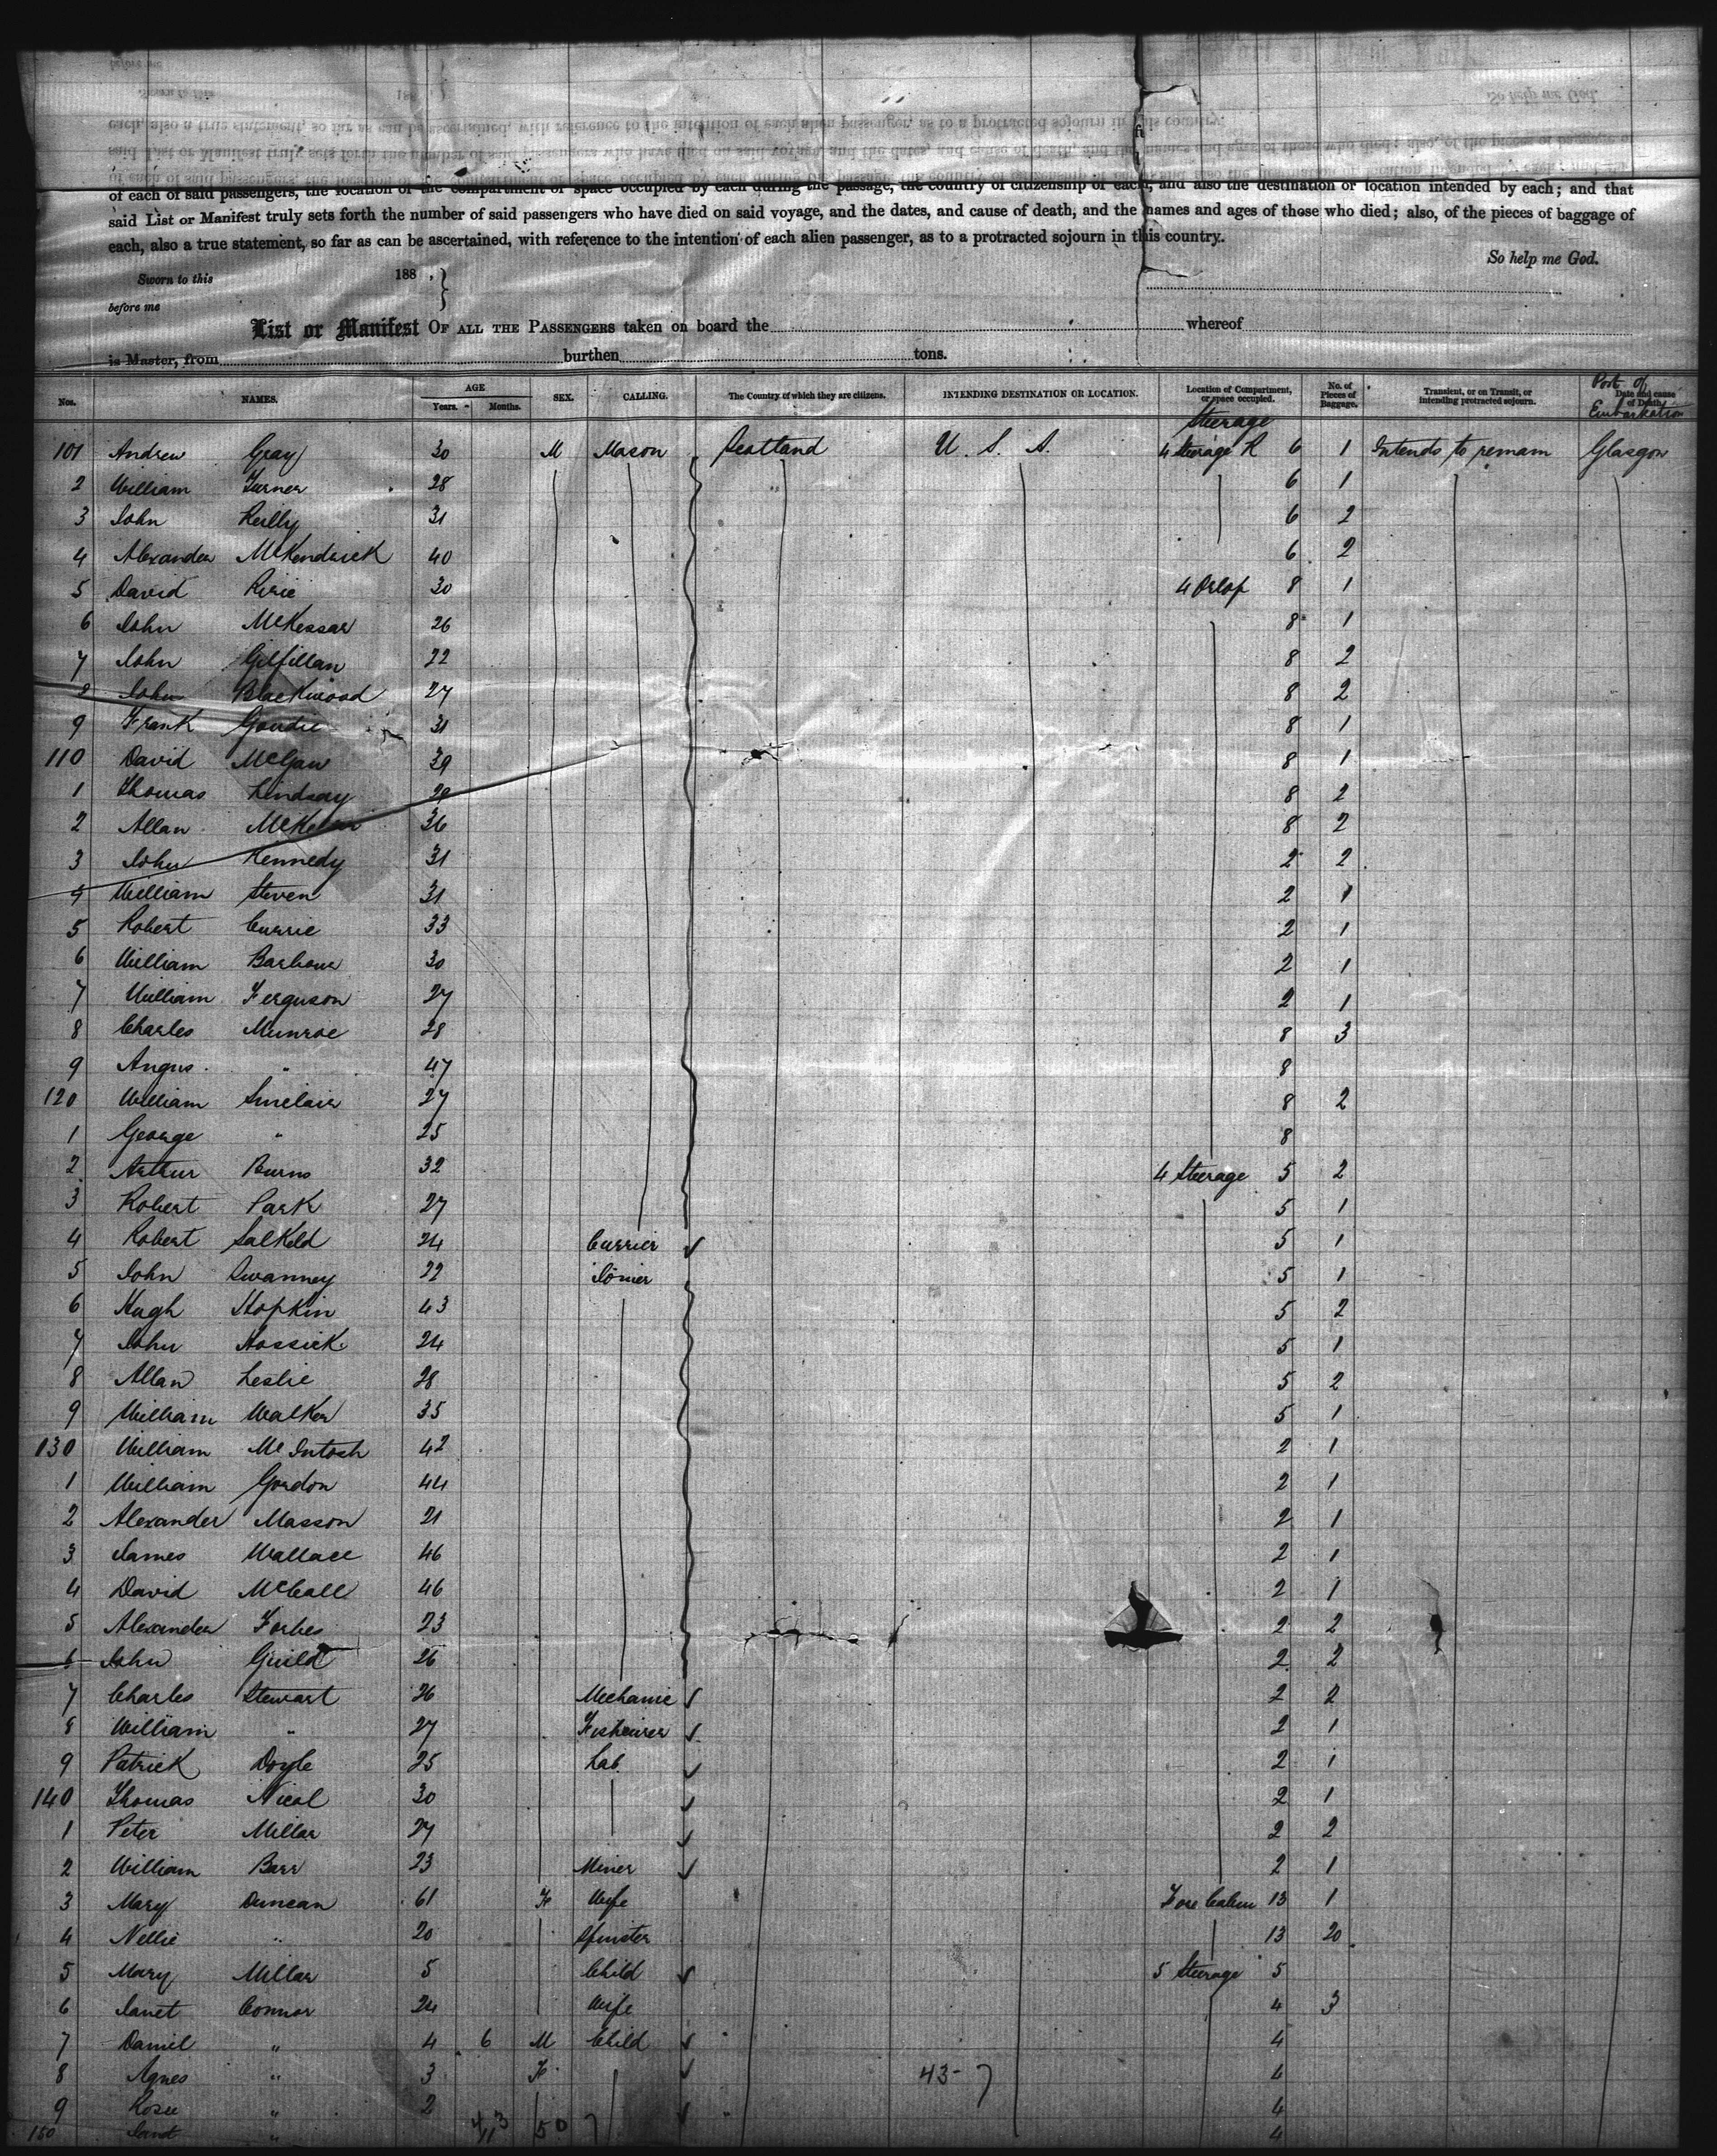 of each of said passengers, the location of the compartment or space occupied by each during the passage, the country of citizenship of each, and also the destination or location intended by each; and that
said List or Manifest truly sets forth the number of said passengers who have died on said voyage, and the dates, and cause of death, and the names and ages of those who died; also, of the pieces of baggage of
each, also a true statement, so far as can be ascertained, with reference to the intention of each alien passenger, as to a protracted sojourn in this country.
So help me God.
Sworn to this 188 , }
before me
List or Manifest OF ALL THE PASSENGERS taken on board the whereof
is Master, from burthen tons.
Nos. NAMES. AGE Years. Months. SEX. CALLING. The Country of which they are citizens. INTENDING DESTINATION OR LOCATION. Location of Compartment, or space occupied. No. of Pieces of Baggage. Transient, or on Transit, or intending protracted sojourn. Date and cause of Death.
Port of Embarkation
Steerage
101 Andrew Gray 30 M Mason Scotland U. S. A. 4 Steerage R 6 1 Intends to remain Glasgow
2 William Turner 28 " 6 1
3 John Reilly 31 6 2
4 Alexander McKendrick 40 6 2
5 David Pirie 30 4 Orlop 8 1
6 John McKessar 26 8 1
7 John Gilfillan 22 8 2
8 John Blackwood 27 8 2
9 Frank Goudie 31 8 1
110 David McGaw 39 8 1
1 Thomas Lindsay 29 8 2
2 Allan 36 8 2
3 John Kennedy 31 2 2
4 William Steven 31 2 1
5 Robert Currie 33 2 1
6 William Barbour 30 2 1
7 William Ferguson 27 2 1
8 Charles Munroe 28 8 3
9 Angus " 47 8
120 William Sinclair 27 8 2
1 George " 25 8
2 Arthur Burns 32 4 Steerage 5 2
3 Robert Park 27 5 1
4 Robert Salkeld 24 Currier 5 1
5 John Swanney 22 Joiner 5 1
6 Hugh Hopkin 43 5 2
7 John Hossick 24 5 1
8 Allan Leslie 28 5 2
9 William Walker 35 5 1
130 William McIntosh 42 2 1
1 William Gordon 44 2 1
2 Alexander Masson 21 2 1
3 James Wallace 46 2 1
4 David McCall 46 2 1
5 Alexander Forbes 23 2 2
6 John Guild 26 2 2
7 Charles Stewart 26 Mechanic 2 2
8 William " 27 2 1
9 Patrick Doyle 25 Lab. 2 1
140 Thomas Nicol 30 2 1
1 Peter Millar 27 2 2
2 William Barr 23 Miner 2 1
3 Mary Duncan 61 F Wife Fore Cabin 13 1
4 Nellie " 20 Spinster 13 20
5 Mary Millar 5 Child 5 Steerage 5
6 Janet Connor 24 Wife 4 3
7 Daniel " 4 6 M Child 4
8 Agnes " 3 F 43- 7 4
9 Rosie " 2 4
150 " 50 4